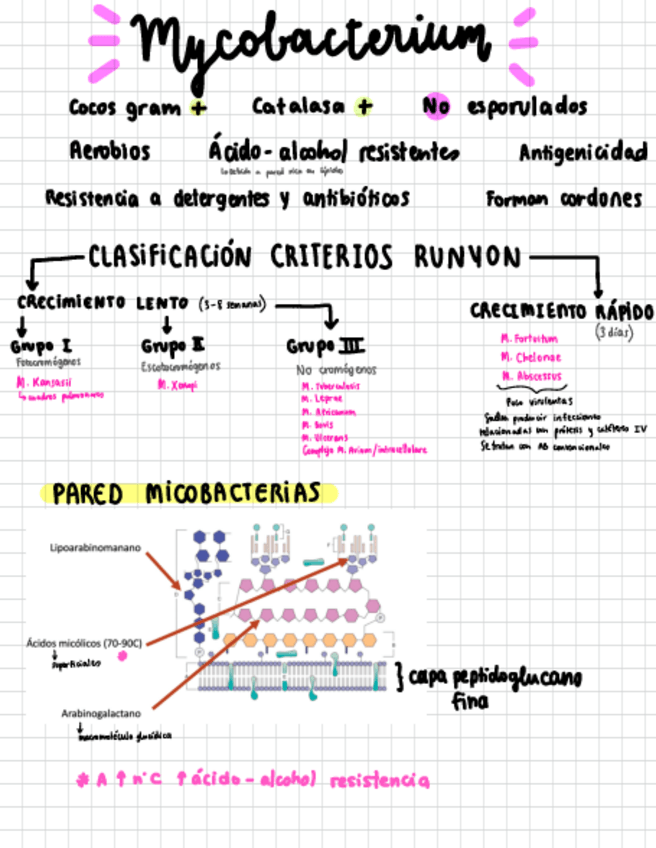 Mycobacterium
Cocos gram + Catalasa + No esporulados
Aerobios Ácido-alcohol resistentes Antigenicidad
Resistencia a detergentes y antibióticos Forman cordones
CLASIFICACIÓN CRITERIOS RUNYON
CRECIMIENTO LENTO (3-8 semanas) CRECIMIENTO RÁPIDO
(3 días)
Grupo I Grupo II Grupo III
Fotocromógenos Escotocromógenos No cromógenos
M. Kansasii
cuadros pulmonares
M. Xenopi
M. Tuberculosis
M. Leprae
M. Africanum
M. Bovis
M. Ulcerans
Complejo M. Avium/intracellulare
M. Fortuitum
M. Chelonae
M. Abscessus
Poco virulentas
Suelen producir infecciones
relacionadas con prótesis y catéteres IV
Se tratan con AB convencionales
PARED MICOBACTERIAS
Lipoarabinomanano
Ácidos micólicos (70-90C)
superficiales
Arabinogalactano
macromolécula glucídica
capa peptidoglucano
fina
* A ↑ nºC ↑ ácido-alcohol resistencia